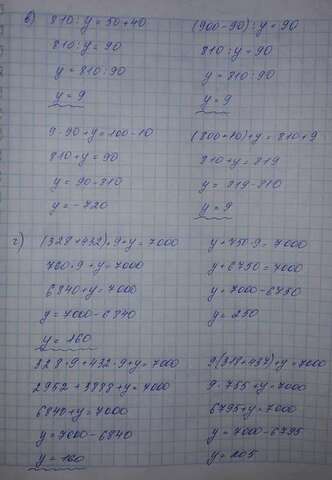 в) 810 : y = 50 + 40
810 : y = 90
y = 810 : 90
y = 9
(900 - 90) : y = 90
810 : y = 90
y = 810 : 90
y = 9
9 · 90 + y = 100 - 10
810 + y = 90
y = 90 - 810
y = - 720
(800 + 10) + y = 810 + 9
810 + y = 819
y = 819 - 810
y = 9
г) (328 + 432) · 9 + y = 7000
760 · 9 + y = 7000
6840 + y = 7000
y = 7000 - 6840
y = 160
y + 750 · 9 = 7000
y + 6750 = 7000
y = 7000 - 6750
y = 250
328 · 9 + 432 · 9 + y = 7000
2952 + 3888 + y = 7000
6840 + y = 7000
y = 7000 - 6840
y = 160
9 (318 + 437) + y = 7000
9 · 755 + y = 7000
6795 + y = 7000
y = 7000 - 6795
y = 205